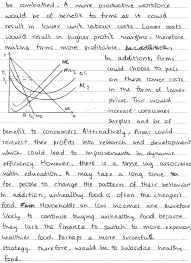 be controlled. A more productive workforce
would be of benefit to firms as it could
result in lower unit labour costs. Lower costs
would result in higher profit margins, therefore
making firms more profitable. In addition,
In addition, firms
could choose to pass
on these lower costs
in the form of lower
prices. This would
increase consumer
surplus and be of
benefit to consumers. Alternatively, firms could
reinvest their profits into research and development
which could lead to improvements in dynamic
efficiency. However, there is a time lag associated
with education. It may take a long time
for people to change the pattern of their behaviour
In addition, unhealthy food is often the cheapest
food. Households on low incomes are therefore
likely to continue buying unhealthy food because
they lack the finance to switch to more expensive
healthier food. Perhaps a more successful
strategy, therefore, would be to subsidise healthy
food.
MC
AC